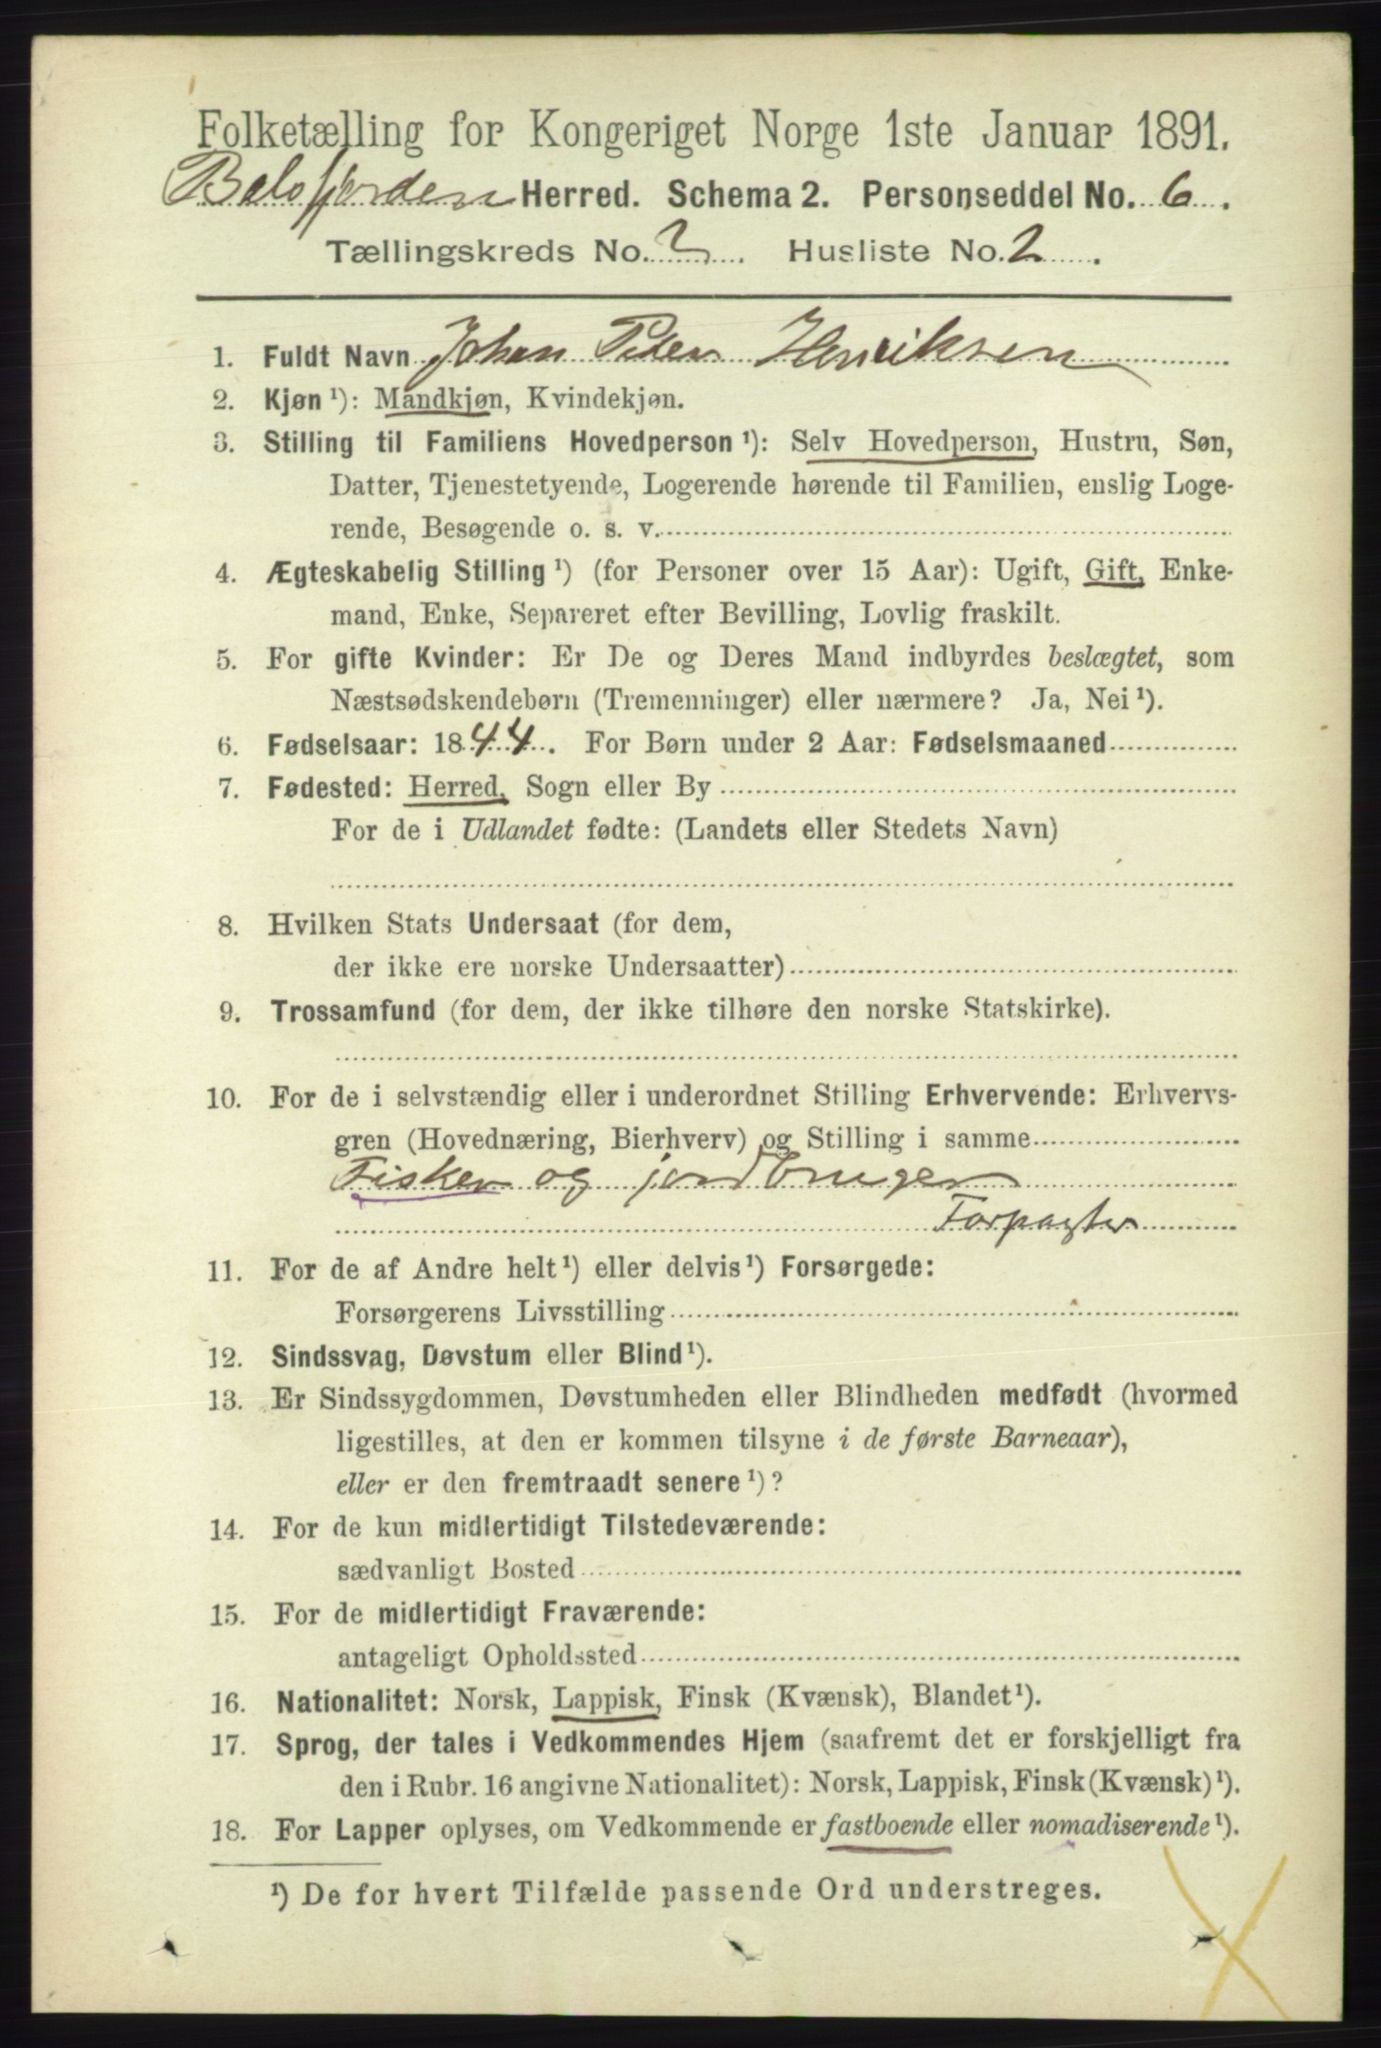 Folketælling for Kongeriget Norge 1ste Januar 1891.
Balsfjorden Herred. Schema 2. Personseddel No. 6.
Tællingskreds No. 2. Husliste No. 2.
1. Fuldt Navn Johan Peder Henriksen
2. Kjøn ¹): Mandkjøn, Kvindekjøn.
3. Stilling til Familiens Hovedperson ¹): Selv Hovedperson, Hustru, Søn,
Datter, Tjenestetyende, Logerende hørende til Familien, enslig Loge-
rende, Besøgende o. s. v.
4. Ægteskabelig Stilling ¹) (for Personer over 15 Aar): Ugift, Gift, Enke-
mand, Enke, Separeret efter Bevilling, Lovlig fraskilt.
5. For gifte Kvinder: Er De og Deres Mand indbyrdes beslægtet, som
Næstsødskendebørn (Tremenninger) eller nærmere? Ja, Nei ¹).
6. Fødselsaar: 1844. For Børn under 2 Aar: Fødselsmaaned
7. Fødested: Herred, Sogn eller By
For de i Udlandet fødte: (Landets eller Stedets Navn)
8. Hvilken Stats Undersaat (for dem,
der ikke ere norske Undersaatter)
9. Trossamfund (for dem, der ikke tilhøre den norske Statskirke).
10. For de i selvstændig eller i underordnet Stilling Erhvervende: Erhvervs-
gren (Hovednæring, Bierhverv) og Stilling i samme
Fisker og jordbruger
Forpagter
11. For de af Andre helt ¹) eller delvis ¹) Forsørgede:
Forsørgerens Livsstilling
12. Sindssvag, Døvstum eller Blind ¹).
13. Er Sindssygdommen, Døvstumheden eller Blindheden medfødt (hvormed
ligestilles, at den er kommen tilsyne i de første Barneaar),
eller er den fremtraadt senere ¹)?
14. For de kun midlertidigt Tilstedeværende:
sædvanligt Bosted
15. For de midlertidigt Fraværende:
antageligt Opholdssted
16. Nationalitet: Norsk, Lappisk, Finsk (Kvænsk), Blandet ¹).
17. Sprog, der tales i Vedkommendes Hjem (saafremt det er forskjelligt fra
den i Rubr. 16 angivne Nationalitet): Norsk, Lappisk, Finsk (Kvænsk) ¹).
18. For Lapper oplyses, om Vedkommende er fastboende eller nomadiserende ¹).
¹) De for hvert Tilfælde passende Ord understreges.